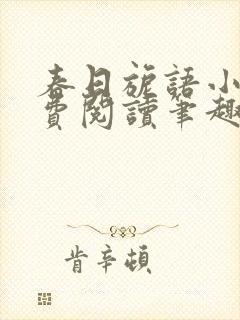 春日旎語小
費閱讀筆趣
肯辛頓